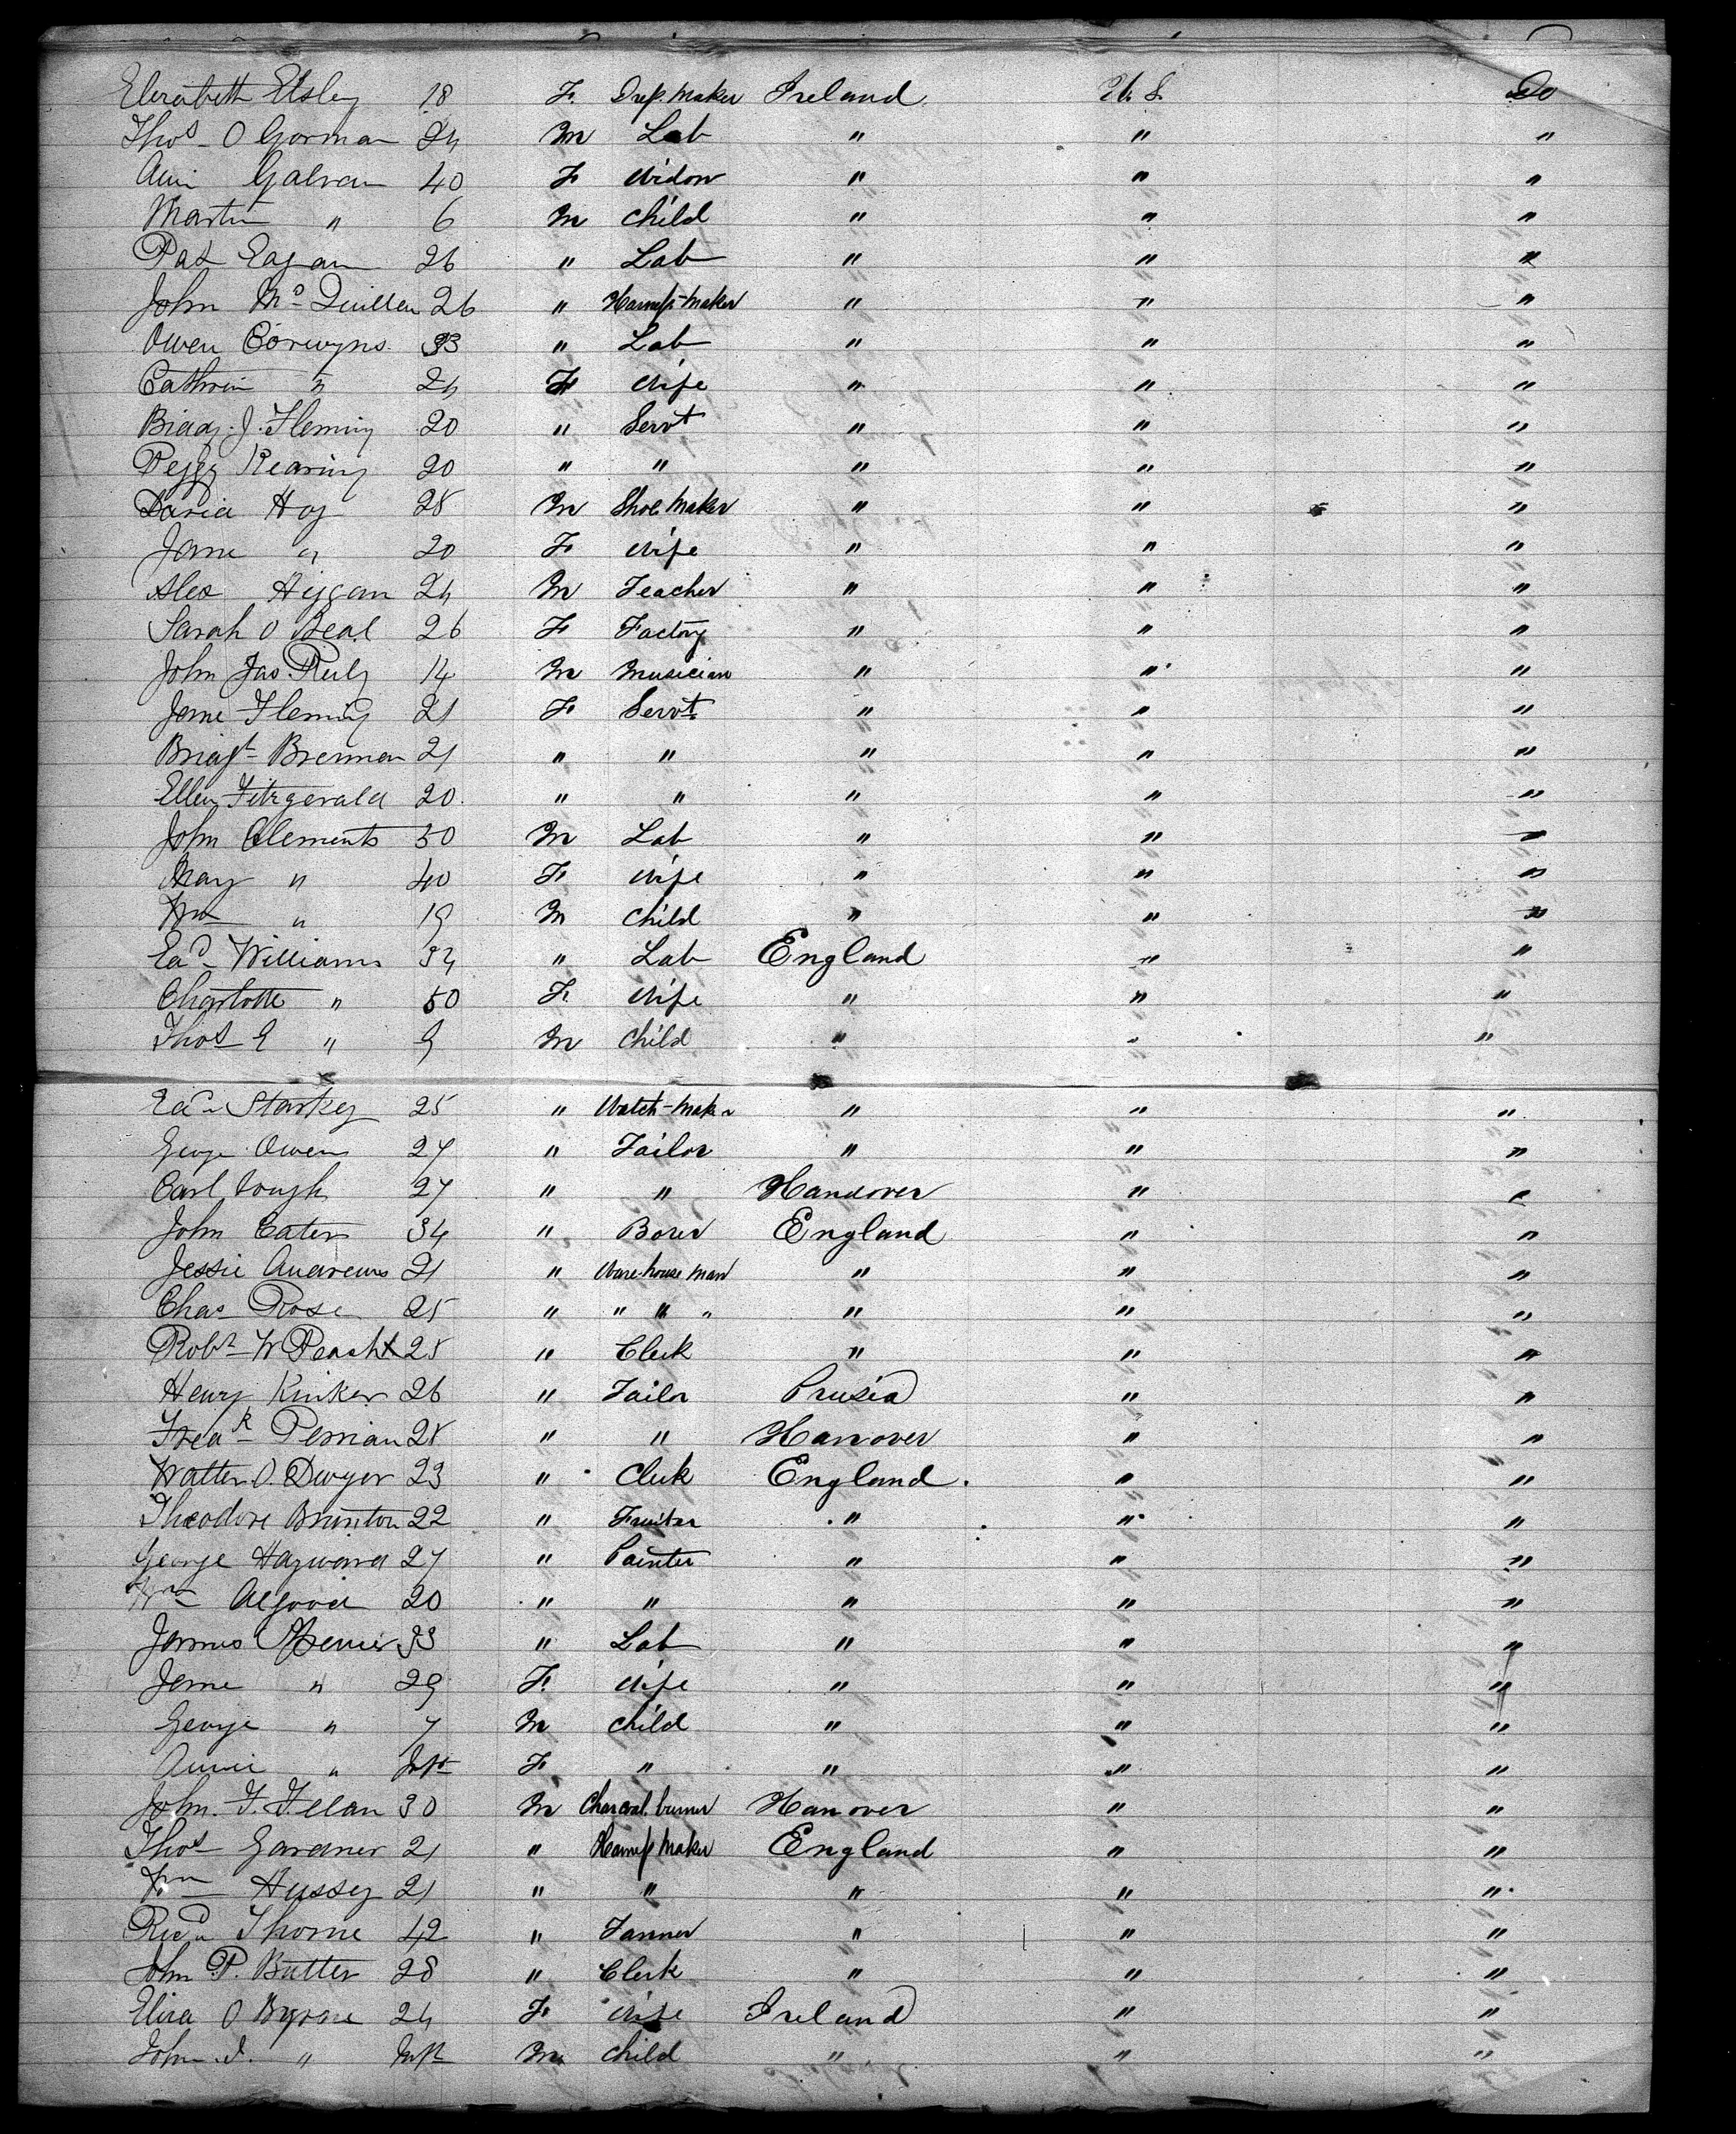 Elizabeth Elsley 18 F. Dress Maker Ireland U. S. Do
Thos O Gorman 24 M Lab " " "
Ann Galvan 40 F Widow " " "
Martin " 6 M Child " " "
Pat Eagan 26 " Lab " " "
John McQuillan 26 " Harness-Maker " " "
Owen 33 " Lab " " "
Cathrin " 24 F Wife " " "
Bridg. J. Fleming 20 " Servt " " "
Peggy Kearing 20 " " " " "
David Hoy 28 M Shoe Maker " " "
Jane " 20 F Wife " " "
Alex Higgan 24 M Teacher " " "
Sarah O Beal 26 F Factory " " "
John Jas Reily 14 M Musician " " "
Jane Fleming 21 F Servt. " " "
Bridgt Brennan 21 " " " " "
Ellen Fitzgerald 20 " " " " "
John Clements 50 M Lab " " "
Mary " 40 F Wife " " "
Wm " 19 M Child " " "
Edd Williams 34 " Lab England " "
Charlotte " 50 F. Wife " " "
Thos E " 9 M Child " " "
Edd Starkey 25 " Watch-Maker " " "
George Owens 27 " Tailor " " "
Carl 27 " " Hanover " "
John Cater 34 " Borer England " "
Jessie Andrews 21 " Ware-house Man " " "
Chas Rose 25 " " " " " " "
Robt W 25 " Clerk " " "
Henry Kinker 26 " Tailor Prusia " "
Fredk Perrian 28 " " Hanover " "
Walter O. Dwyer 23 " Clerk England. " "
Theodore Brinton 22 " " " "
George Hayward 27 " Painter " " "
Wm Algood 20 " " " " "
James 33 " Lab " " "
Jane " 29 F. Wife " " "
George " 7 M Child " " "
Annie " Inft F " " " "
John. F. Felan 30 M Charcoal burner Hanover " "
Thos Gardner 21 " Harness Maker England " "
Wm Hussey 21 " " " " "
Ricd Thorne 42 " Tanner " " "
John P. Butter 28 " Clerk " " "
Eliza O Byrne 24 F Wife Ireland " "
John. J. " Inft M. Child " " "